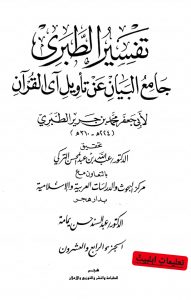 تفسير الطبري
جامع البيان عن تأويل آي القرآن
لأبي جعفر محمد بن جرير الطبري
(٢٢٤ھ - ٣١٠ھ)
تحقيق
الدكتور عبد الله بن عبد المحسن التركي
بالتعاون مع
مركز البحوث والدراسات العربية والإسلامية
بدار هجر
الدكتور عبد السند حسن يمامة
الجزء الرابع والعشرون
هجر
للطباعة والنشر والتوزيع والإعلان